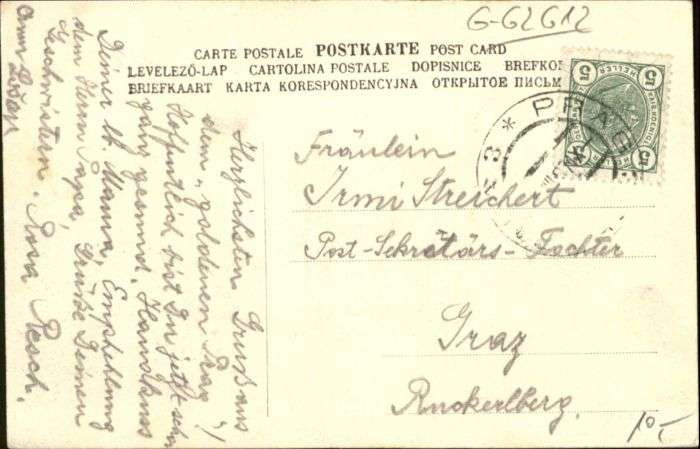 G-G2G12
CARTE POSTALE POSTKARTE POST CARD
LEVELEZŐ-LAP CARTOLINA POSTALE DOPISNICE BREFKO
BRIEFKAART KARTA KORESPONDENCYJNA ОТКРЫТОЕ ПИСЬМ
5 HELLER 5
5 HELLER 5
PRAG
Herzlichsten Gruß aus
dem „goldenen Prag"!
Hoffentlich bist Du jetzt schon
ganz gesund. Handkuss
Deiner lb. Mama, Empfehlung
dem Herrn Papa, Grüße Deinen
Geschwistern. Rosa Resch.
Fräulein
Irmi Streichert
Post-Sekretärs-Tochter
Graz
Ruckerlberg.
10,-